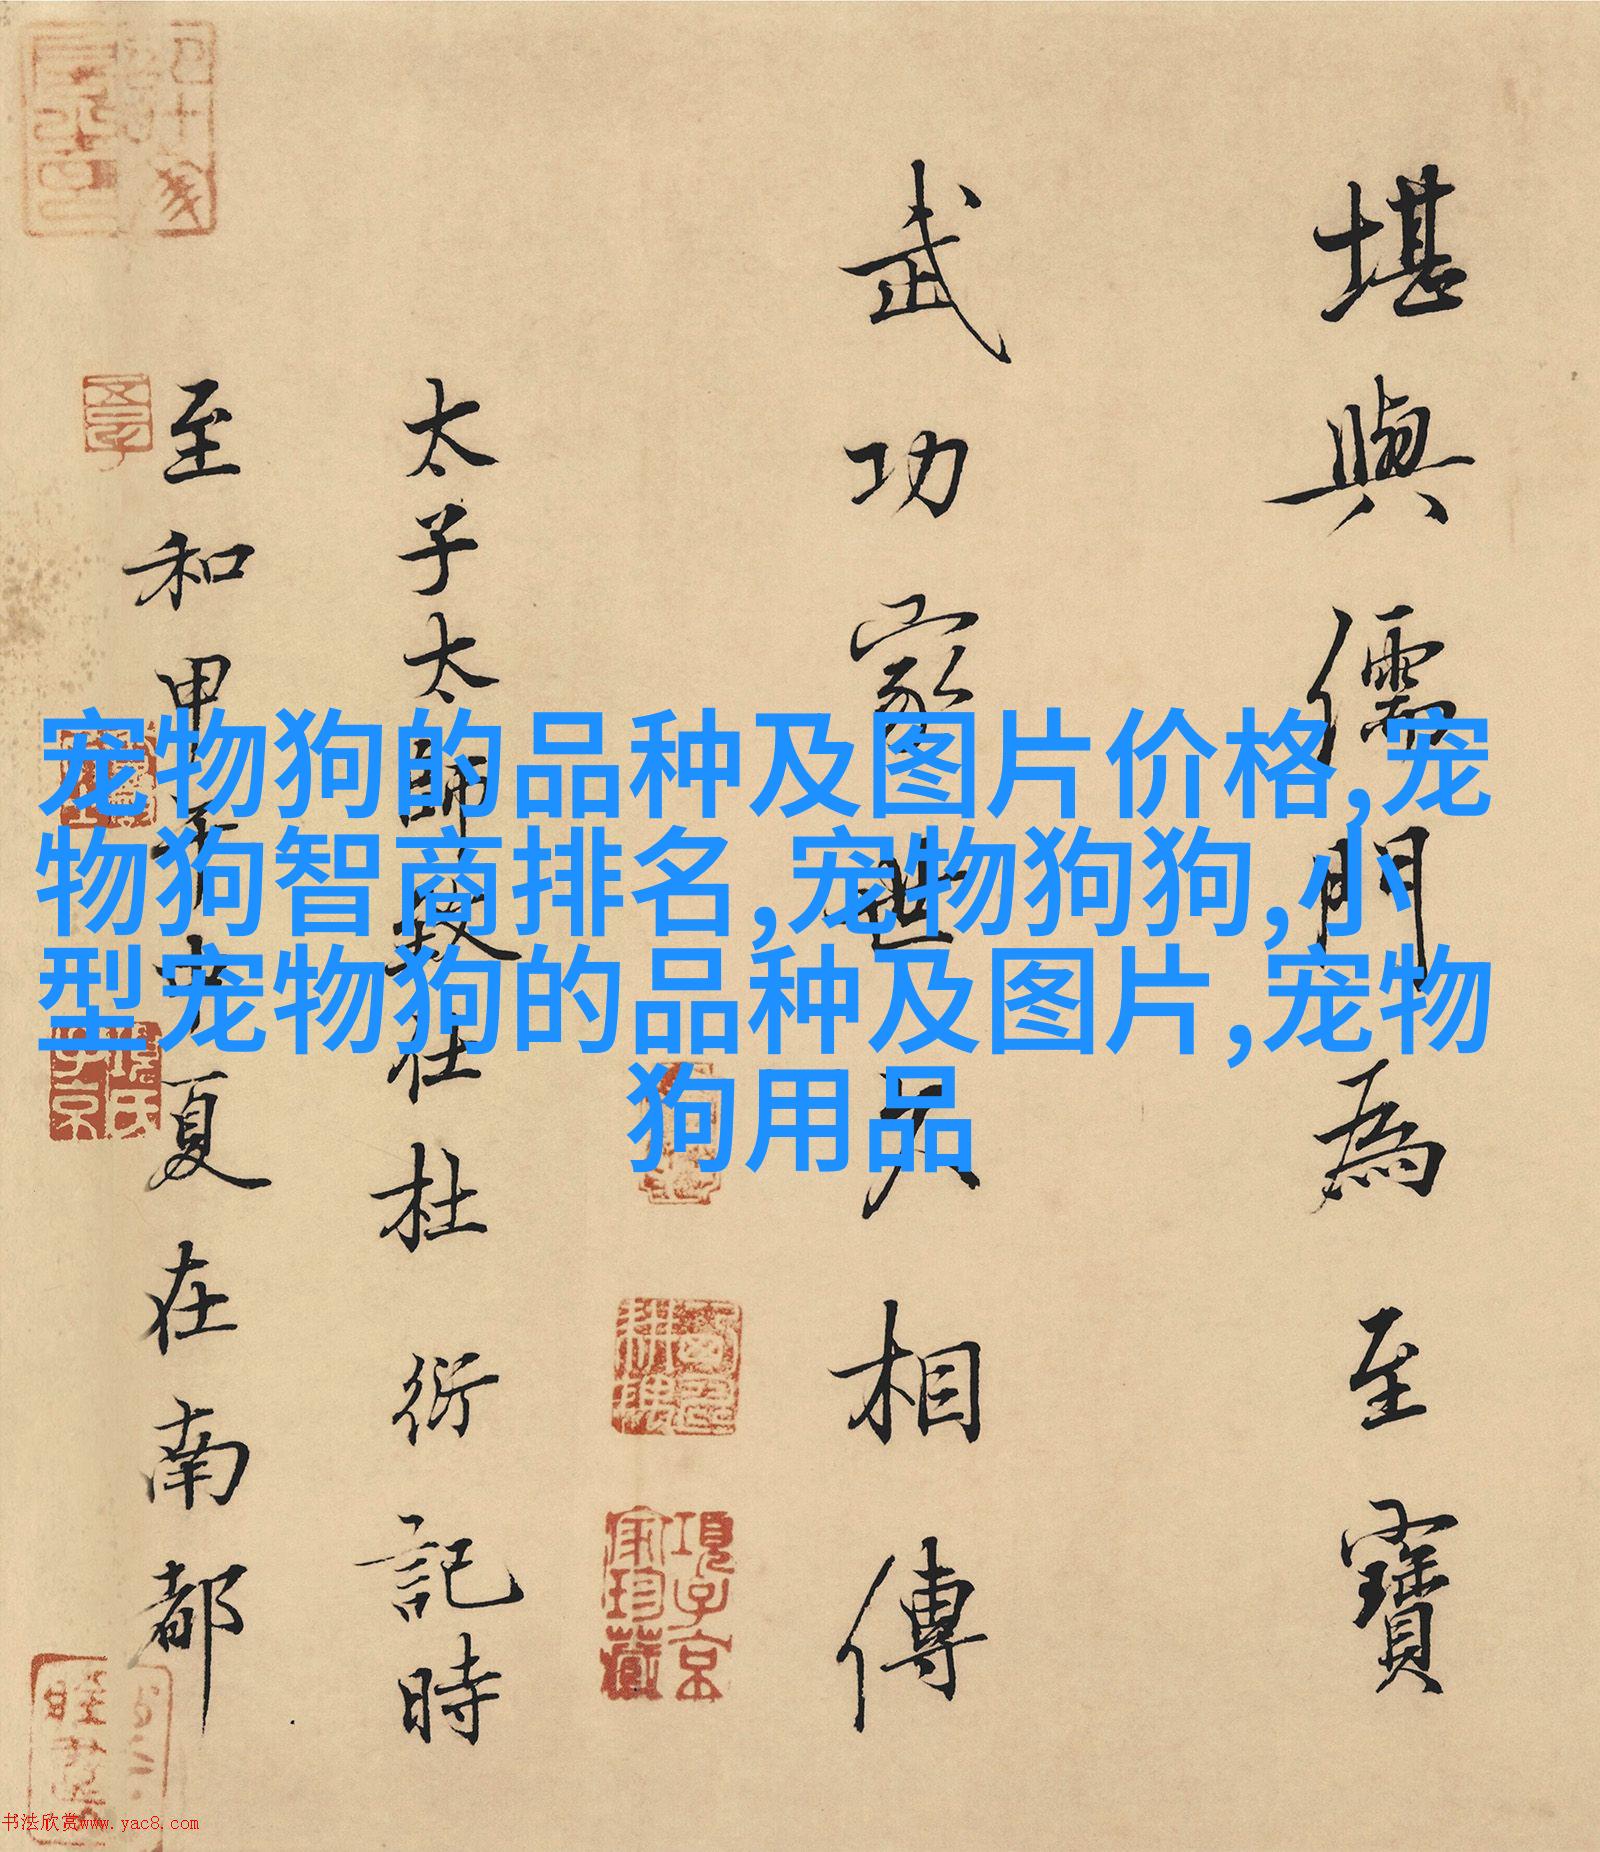 堪與儒門為至寶
武功家世久相傳
太子太師致仕杜衍記時
至和甲夏在南都
宠物狗的品种及图片价格,宠
物狗智商排名,宠物狗狗,小
型宠物狗的品种及图片,宠物
狗用品
項子京家珍藏
項氏子京
书法欣赏www.yac8.com